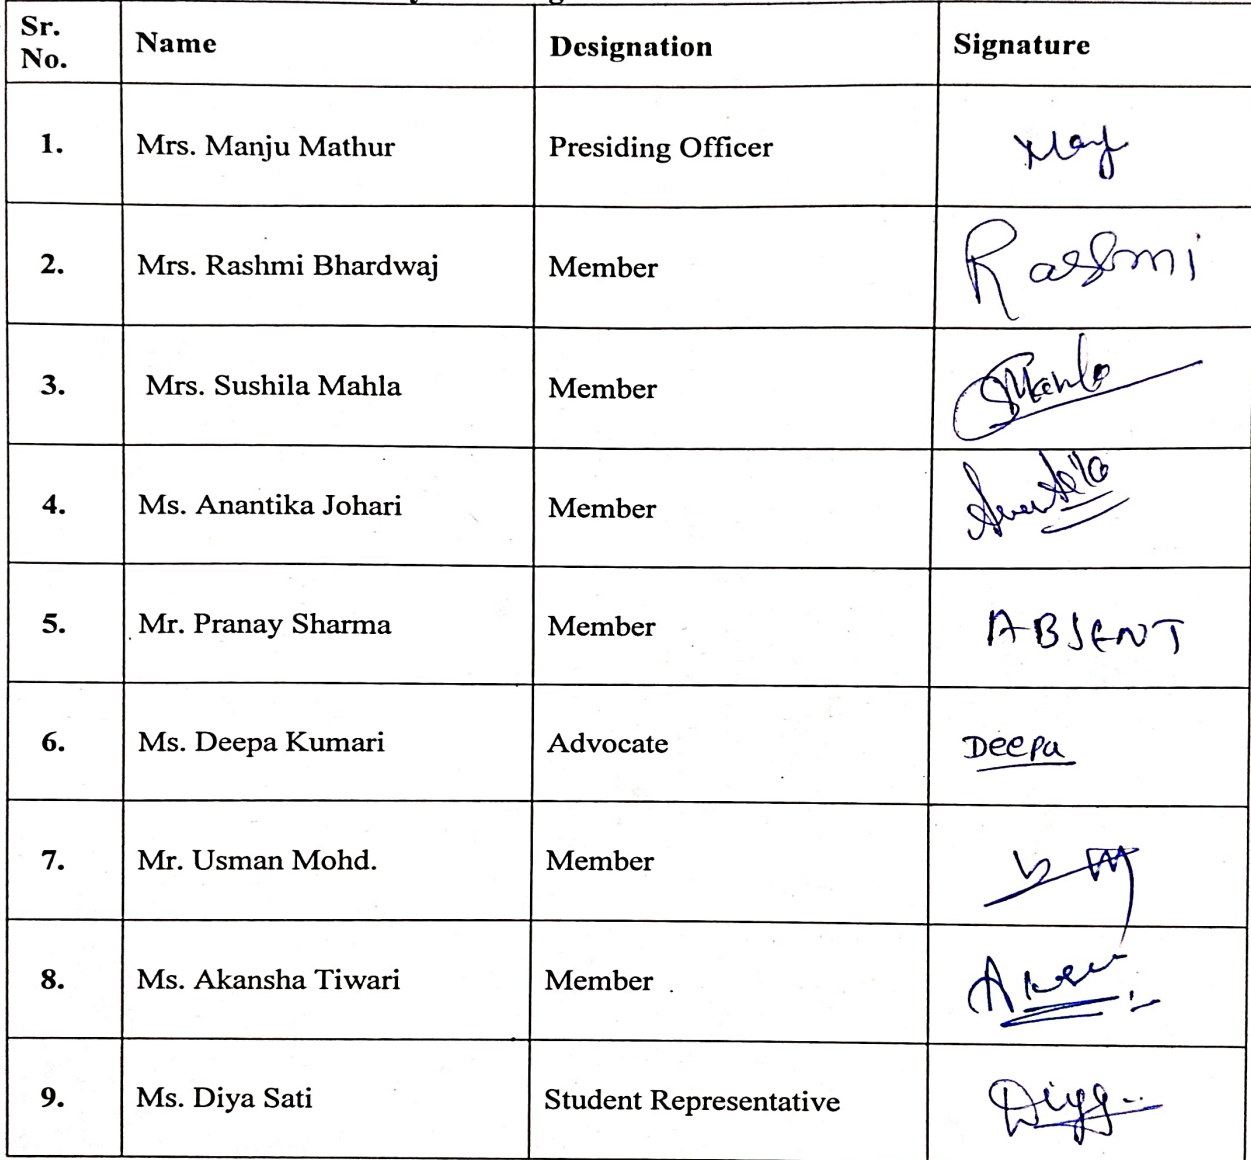 Sr. No. Name Designation Signature
1. Mrs. Manju Mathur Presiding Officer
2. Mrs. Rashmi Bhardwaj Member Rashmi
3. Mrs. Sushila Mahla Member SMahla
4. Ms. Anantika Johari Member
5. Mr. Pranay Sharma Member ABSENT
6. Ms. Deepa Kumari Advocate Deepa
7. Mr. Usman Mohd. Member
8. Ms. Akansha Tiwari Member
9. Ms. Diya Sati Student Representative Diya